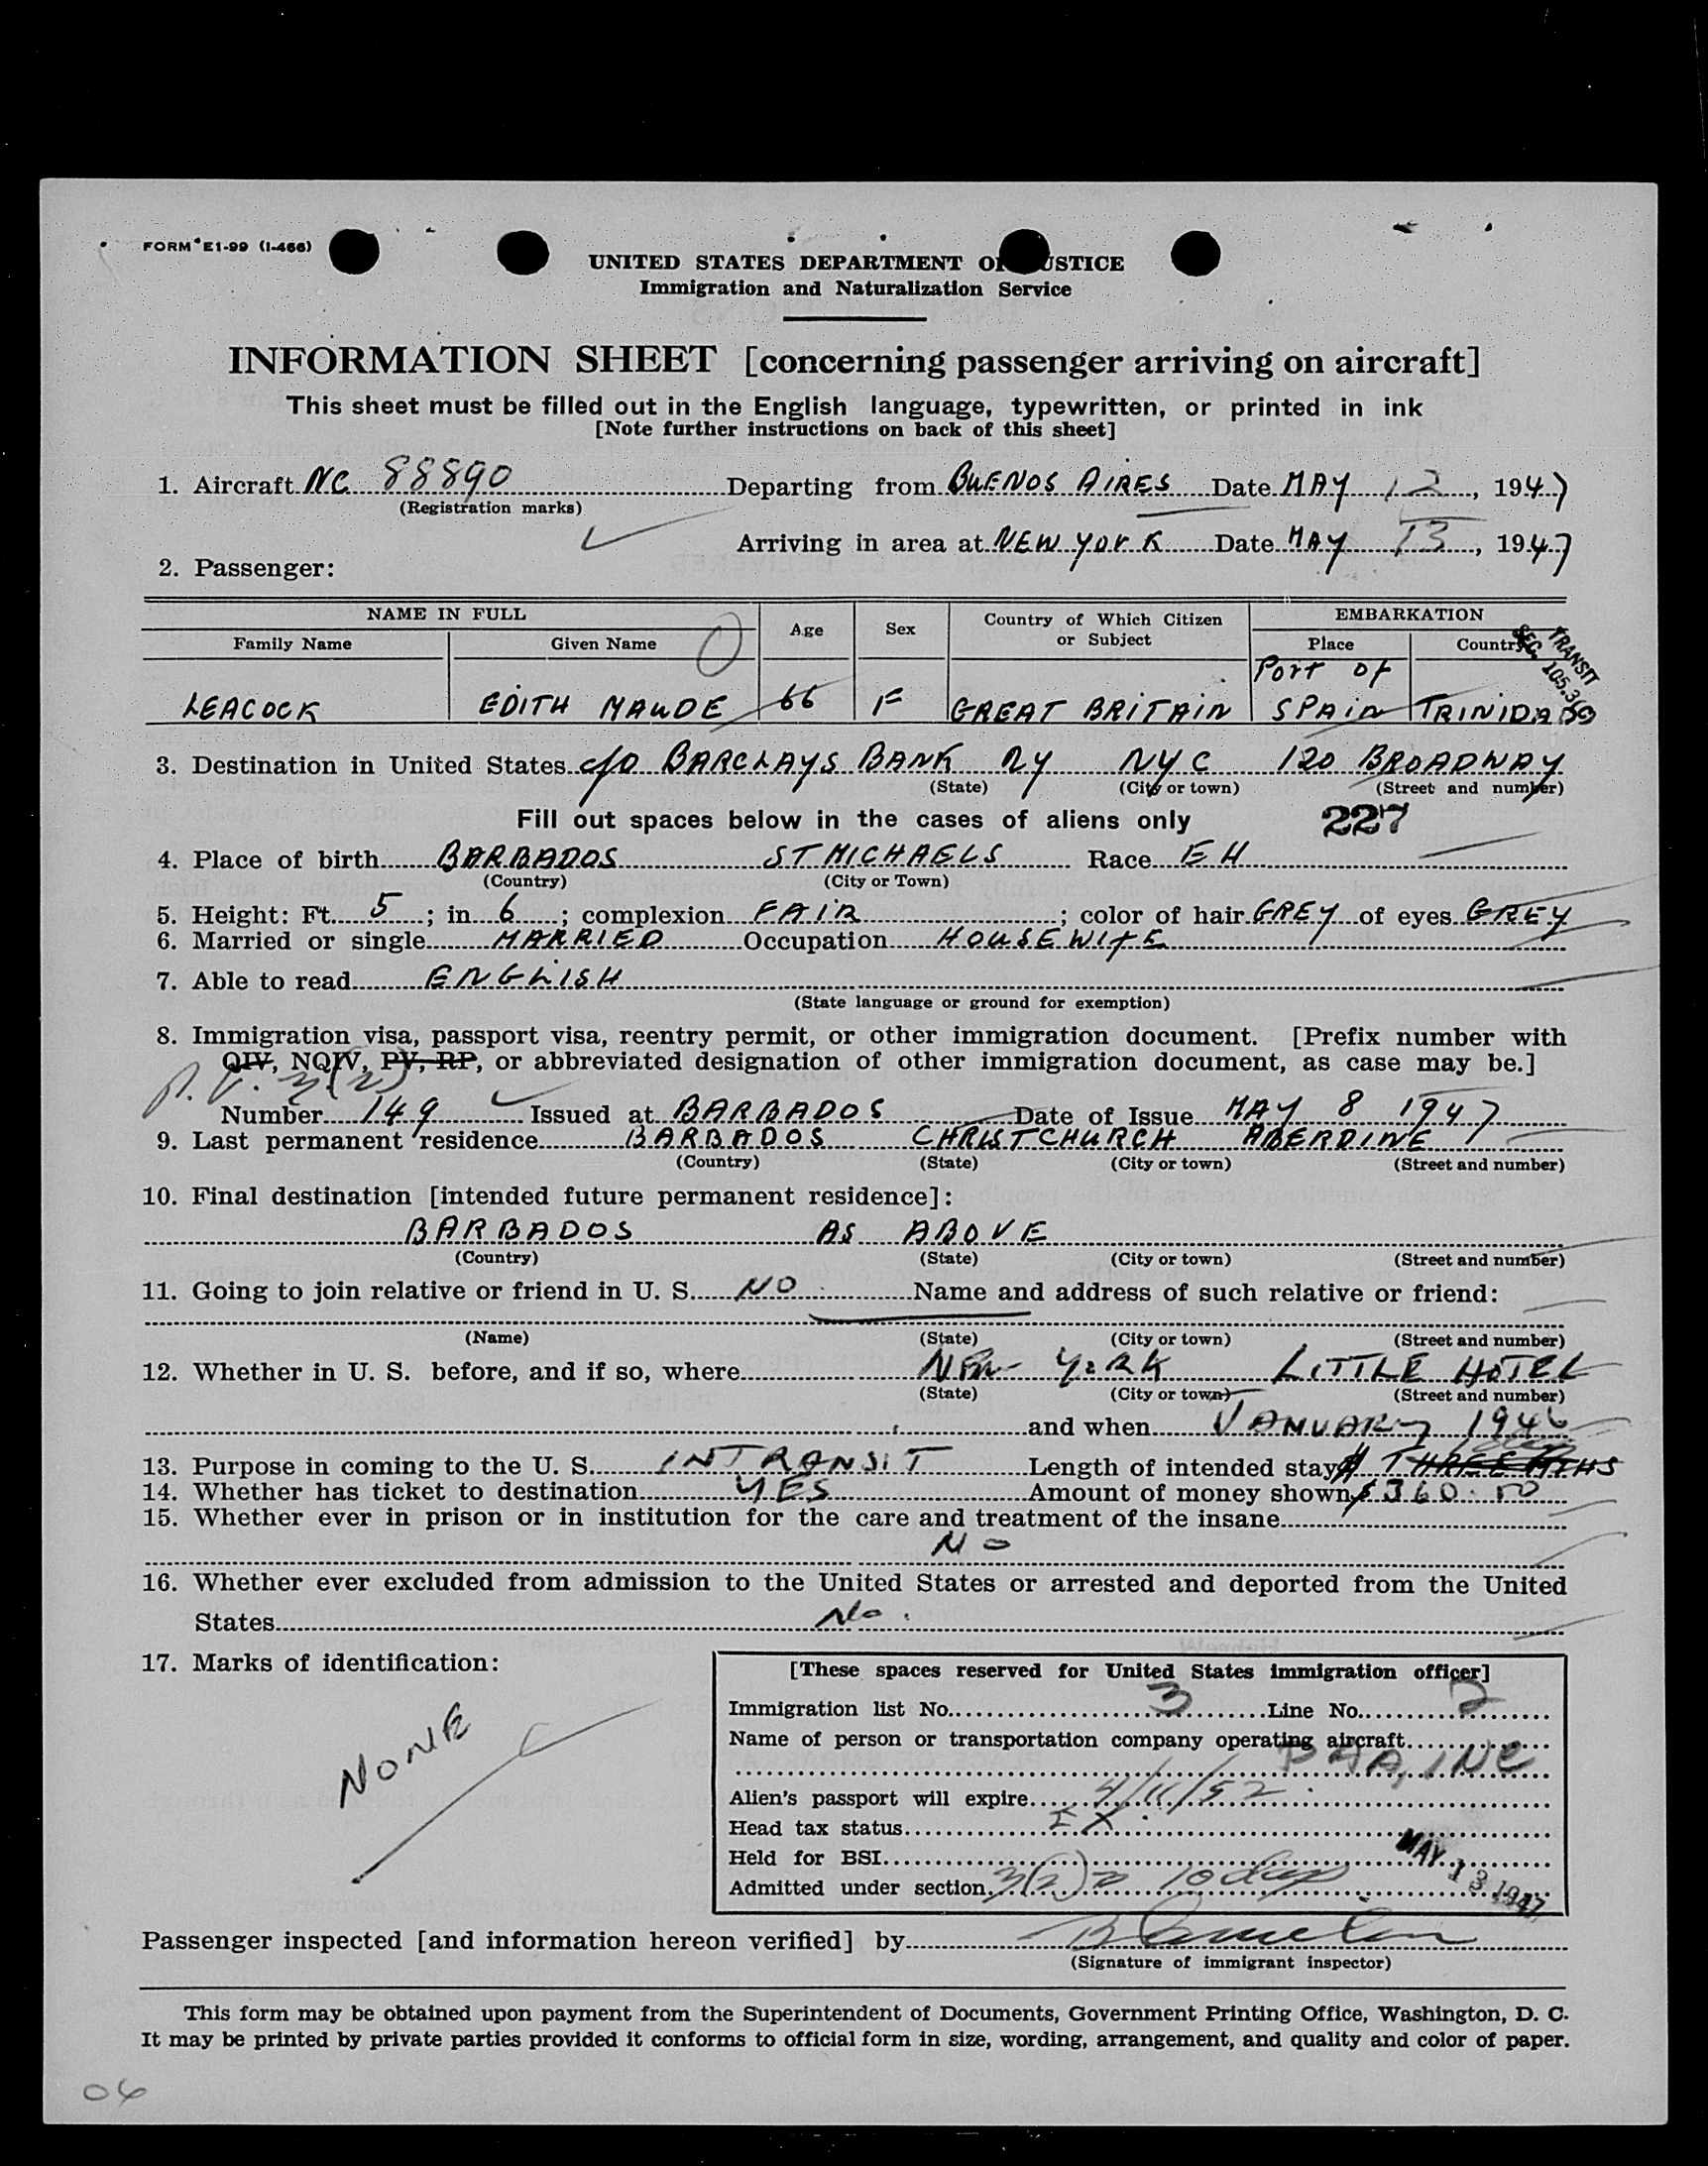 FORM E1-99 (I-466)
UNITED STATES DEPARTMENT OF JUSTICE
Immigration and Naturalization Service
INFORMATION SHEET [concerning passenger arriving on aircraft]
This sheet must be filled out in the English language, typewritten, or printed in ink
[Note further instructions on back of this sheet]
1. Aircraft NC 88890 Departing from BUENOS AIRES Date MAY 12, 1947
(Registration marks)
Arriving in area at NEW YORK Date MAY 13, 1947
2. Passenger:
NAME IN FULL Age Sex Country of Which Citizen or Subject EMBARKATION
Family Name Given Name Place Country
TRANSIT
SEC. 105.3(c)
LEACOCK EDITH MAUDE 66 F GREAT BRITAIN Port of SPAIN TRINIDAD
3. Destination in United States c/o BARCLAYS BANK NY NYC 120 BROADWAY
(State) (City or town) (Street and number)
Fill out spaces below in the cases of aliens only 227
4. Place of birth BARBADOS ST MICHAELS Race EH
(Country) (City or Town)
5. Height: Ft. 5; in. 6; complexion FAIR; color of hair GREY of eyes GREY
6. Married or single MARRIED Occupation HOUSEWIFE
7. Able to read ENGLISH
(State language or ground for exemption)
8. Immigration visa, passport visa, reentry permit, or other immigration document. [Prefix number with
QIV, NQIV, PV, RP, or abbreviated designation of other immigration document, as case may be.]
P.V. 3(2)
Number 149 Issued at BARBADOS Date of Issue MAY 8 1947
9. Last permanent residence BARBADOS CHRISTCHURCH ABERDINE
(Country) (State) (City or town) (Street and number)
10. Final destination [intended future permanent residence]:
BARBADOS AS ABOVE
(Country) (State) (City or town) (Street and number)
11. Going to join relative or friend in U. S. NO Name and address of such relative or friend:
(Name) (State) (City or town) (Street and number)
12. Whether in U. S. before, and if so, where New YORK LITTLE HOTEL
(State) (City or town) (Street and number)
and when JANUARY 1946
13. Purpose in coming to the U. S. INTRANSIT Length of intended stay THREE MTHS
14. Whether has ticket to destination YES Amount of money shown $360.00
15. Whether ever in prison or in institution for the care and treatment of the insane
NO
16. Whether ever excluded from admission to the United States or arrested and deported from the United
States No.
17. Marks of identification:
NONE
[These spaces reserved for United States immigration officer]
Immigration list No. 3 Line No. 2
Name of person or transportation company operating aircraft
PAA, INC
Alien's passport will expire 4/11/52
Head tax status EX
Held for BSI
MAY 13 1947
Admitted under section 3(2) 10 days
Passenger inspected [and information hereon verified] by
(Signature of immigrant inspector)
This form may be obtained upon payment from the Superintendent of Documents, Government Printing Office, Washington, D. C.
It may be printed by private parties provided it conforms to official form in size, wording, arrangement, and quality and color of paper.
06